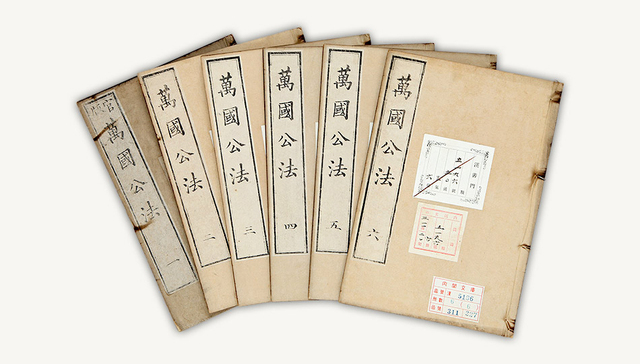 官版
萬國公法 一
萬國公法 二
萬國公法 三
萬國公法 四
萬國公法 五
萬國公法 六
内閣文庫
5186
311